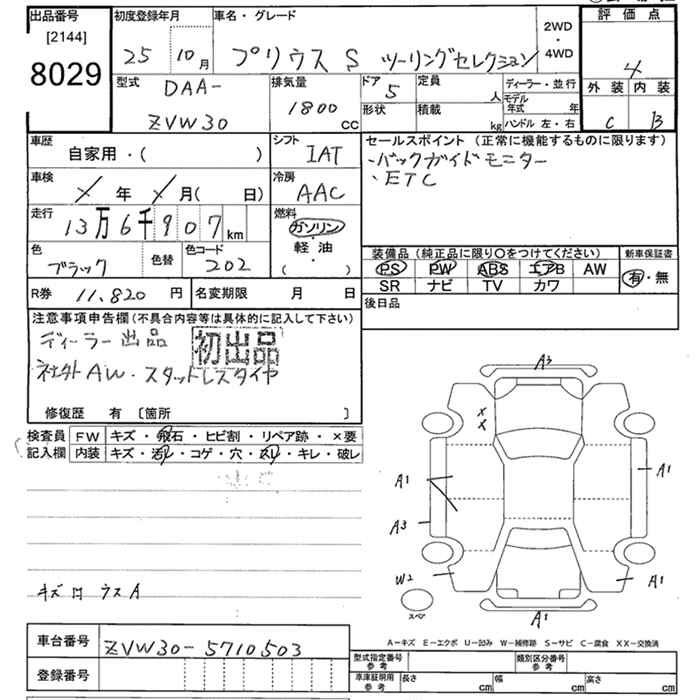 出品番号
[2144]
8029
初度登録年月
25 10月
車名・グレード
プリウス S ツーリングセレクション
2WD
・
4WD
評価点
4
外装 内装
C B
型式
DAA-
ZVW30
排気量
1800
CC
ドア
5
定員
人
形状
積載
kg
ディーラー・並行
モデル
年式 年
ハンドル 左・右
車歴
自家用・( )
シフト
IAT
車検
年 月( 日)
冷房
AAC
走行
13万6千907km
燃料
ガソリン
・
軽油
・
( )
色
ブラック
色替
色コード
202
R券 11,820 円
名変期限 月 日
セールスポイント(正常に機能するものに限ります)
・バックガイドモニター
・ETC
装備品(純正品に限り〇をつけてください)
PS PW ABS エアB AW
SR ナビ TV カワ
新車保証書
有・無
後日品
注意事項申告欄(不具合内容等は具体的に記入して下さい)
ディーラー出品
初出品
社外AW・スタッドレスタイヤ
修復歴 有 〔箇所 〕
検査員
記入欄
FW キズ・飛石・ヒビ割・リペア跡・×要
内装 キズ・汚れ・コゲ・穴・スレ・キレ・破レ
キズ ロ ウス A
車台番号 ZVW30-5710503
登録番号
A3
XX
A1
A3
W2
A1
A1
A1
スペア
A-キズ E-エクボ U-凹み W-補修跡 S-サビ C-腐食 XX-交換済
型式指定番号
参考
類別区分番号
参考
車庫証明用
参考
長さ cm
幅 cm
高さ cm